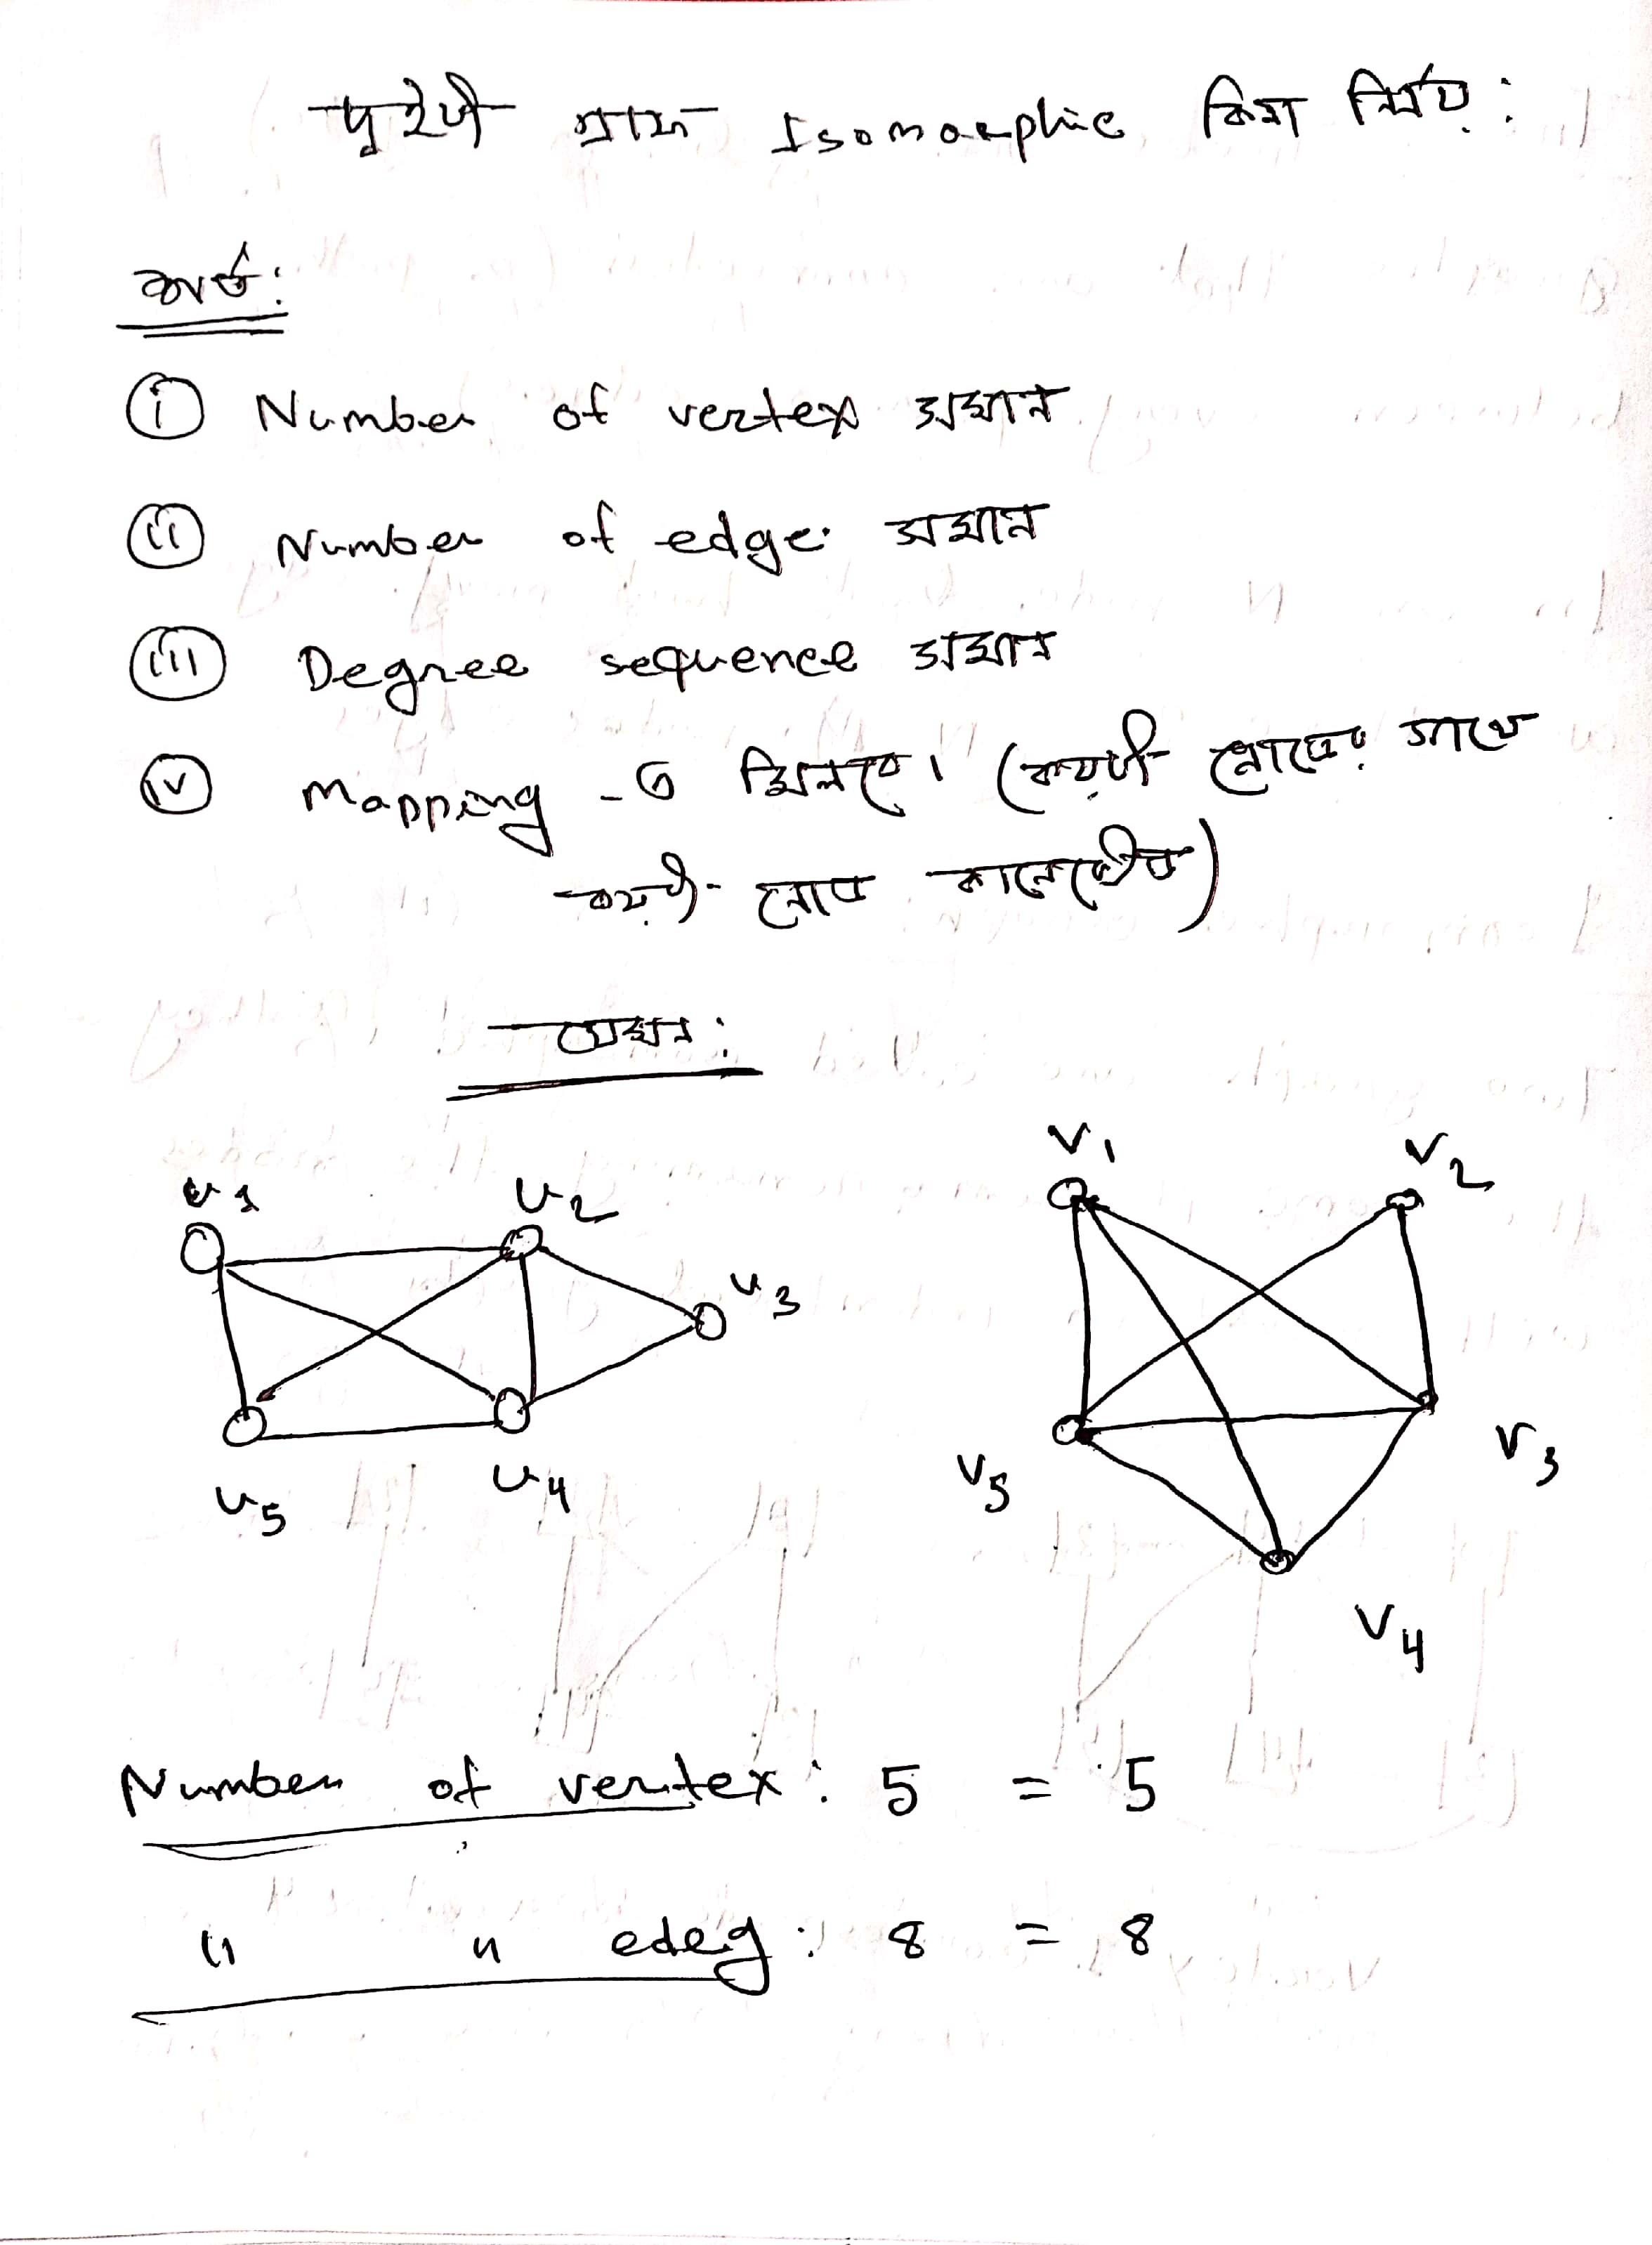 দুইটি গ্রাফ Isomorphic কিনা নির্ণয়:
শর্ত:
(i) Number of vertex সমান
(ii) Number of edge সমান
(iii) Degree sequence সমান
(iv) Mapping -ও মিলবে। (কয়টি নোডের সাথে
কয়টি নোড কানেক্টেড)
যেমন:
u1 u2 u3 u5 u4
v1 v2 v5 v3 v4
Number of vertex: 5 = 5
" " edeg: 8 = 8